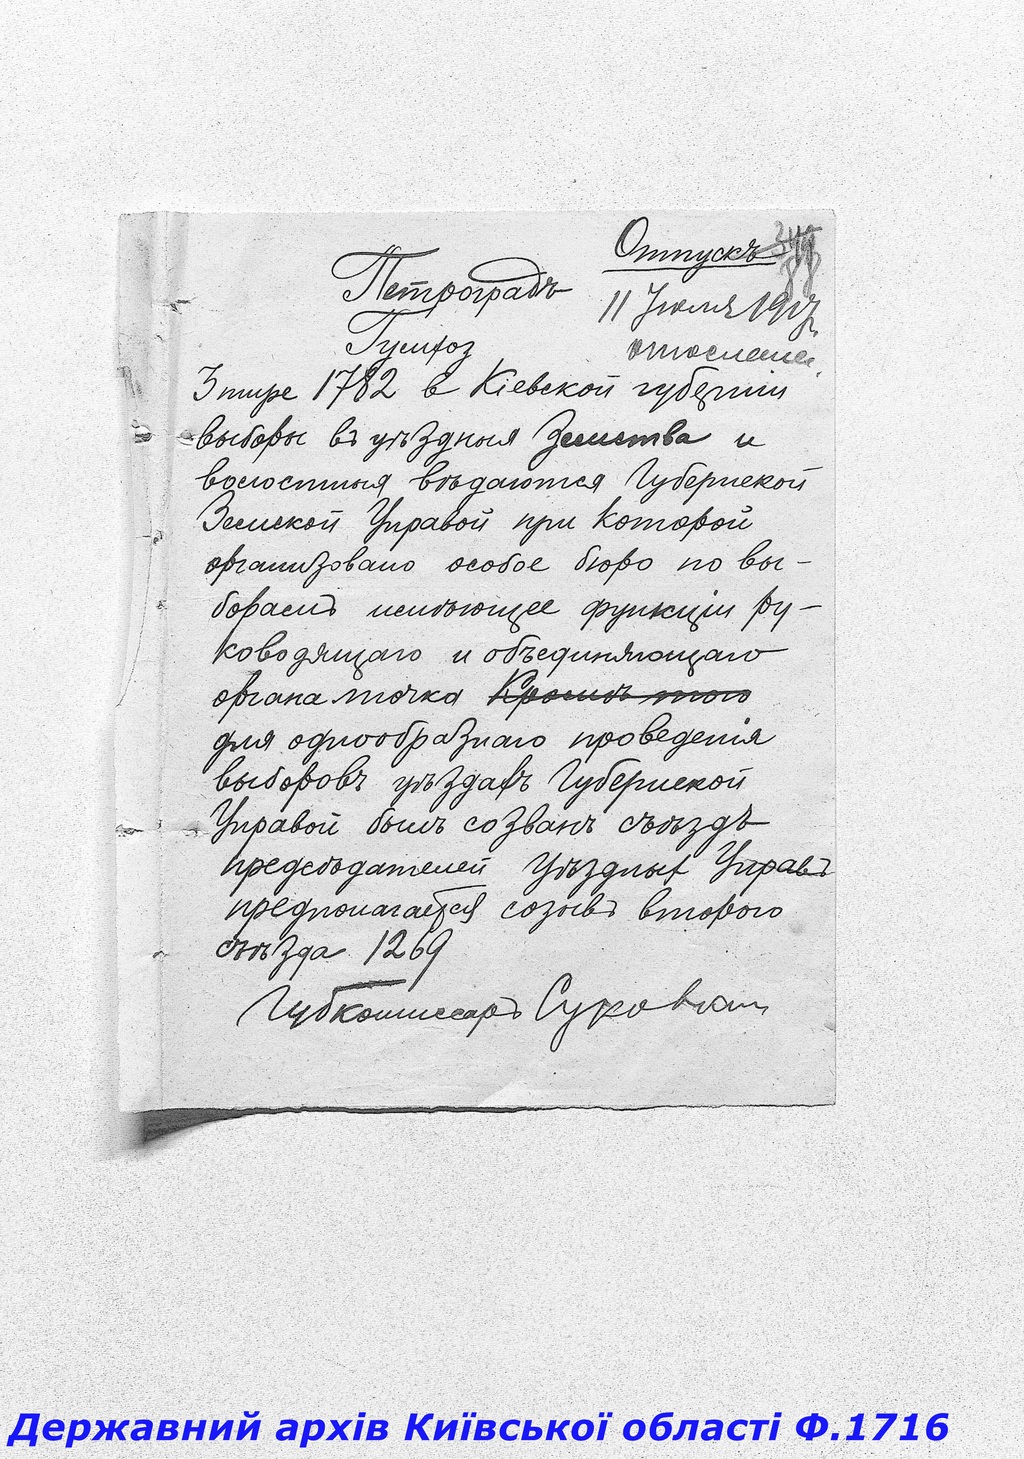 Отпускъ
Петроградъ
11 Июля 1917
Гумхоз
3 тире 1782 в Кіевской губерніи
выборы въ уѣздныя Земства и
волостныя вѣдаются Губернской
Земской Управой при которой
организовано особое бюро по вы-
борамъ имѣющее функціи ру-
ководящаго и объединяющаго
органа точка Кромѣ того
для однообразнаго проведенія
выборовъ уѣздахъ Губернской
Управой былъ созванъ съѣздъ
предсѣдателей Уѣздных Управъ
предполагается созывъ второго
съѣзда 1269
Губкомиссаръ Суковкин
Державний архів Київської області Ф.1716